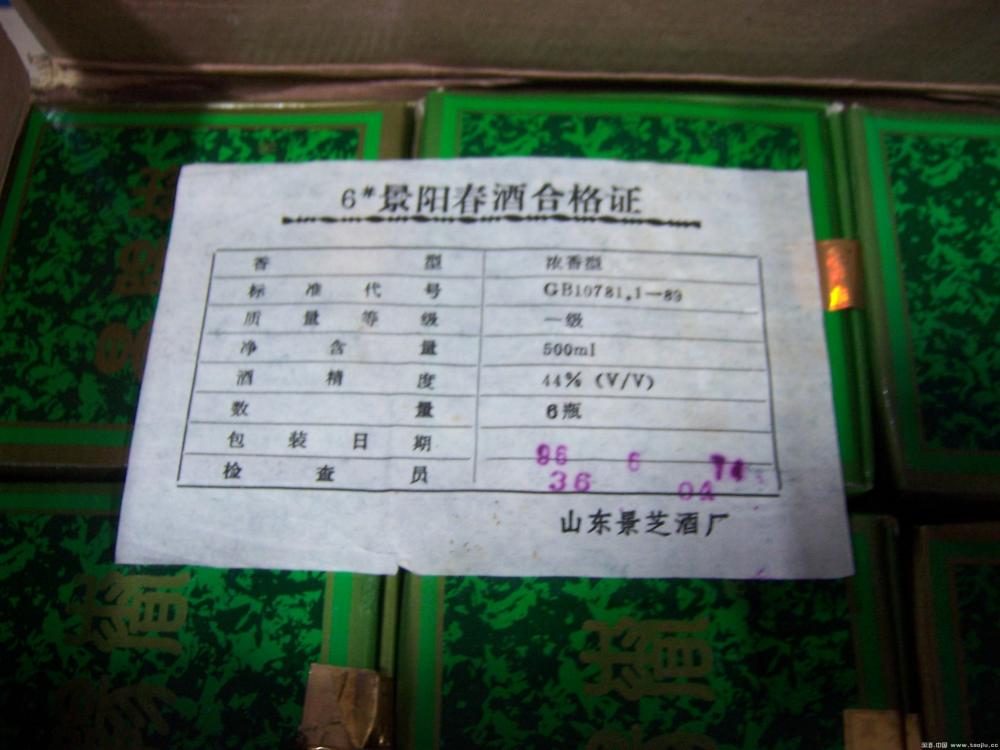 6#景阳春酒合格证
香型 浓香型
标准代号 GB10781.1—89
质量等级 一级
净含量 500ml
酒精度 44% (V/V)
数量 6瓶
包装日期 96 6
检查员 36 04
山东景芝酒厂
www.taojiu.cc